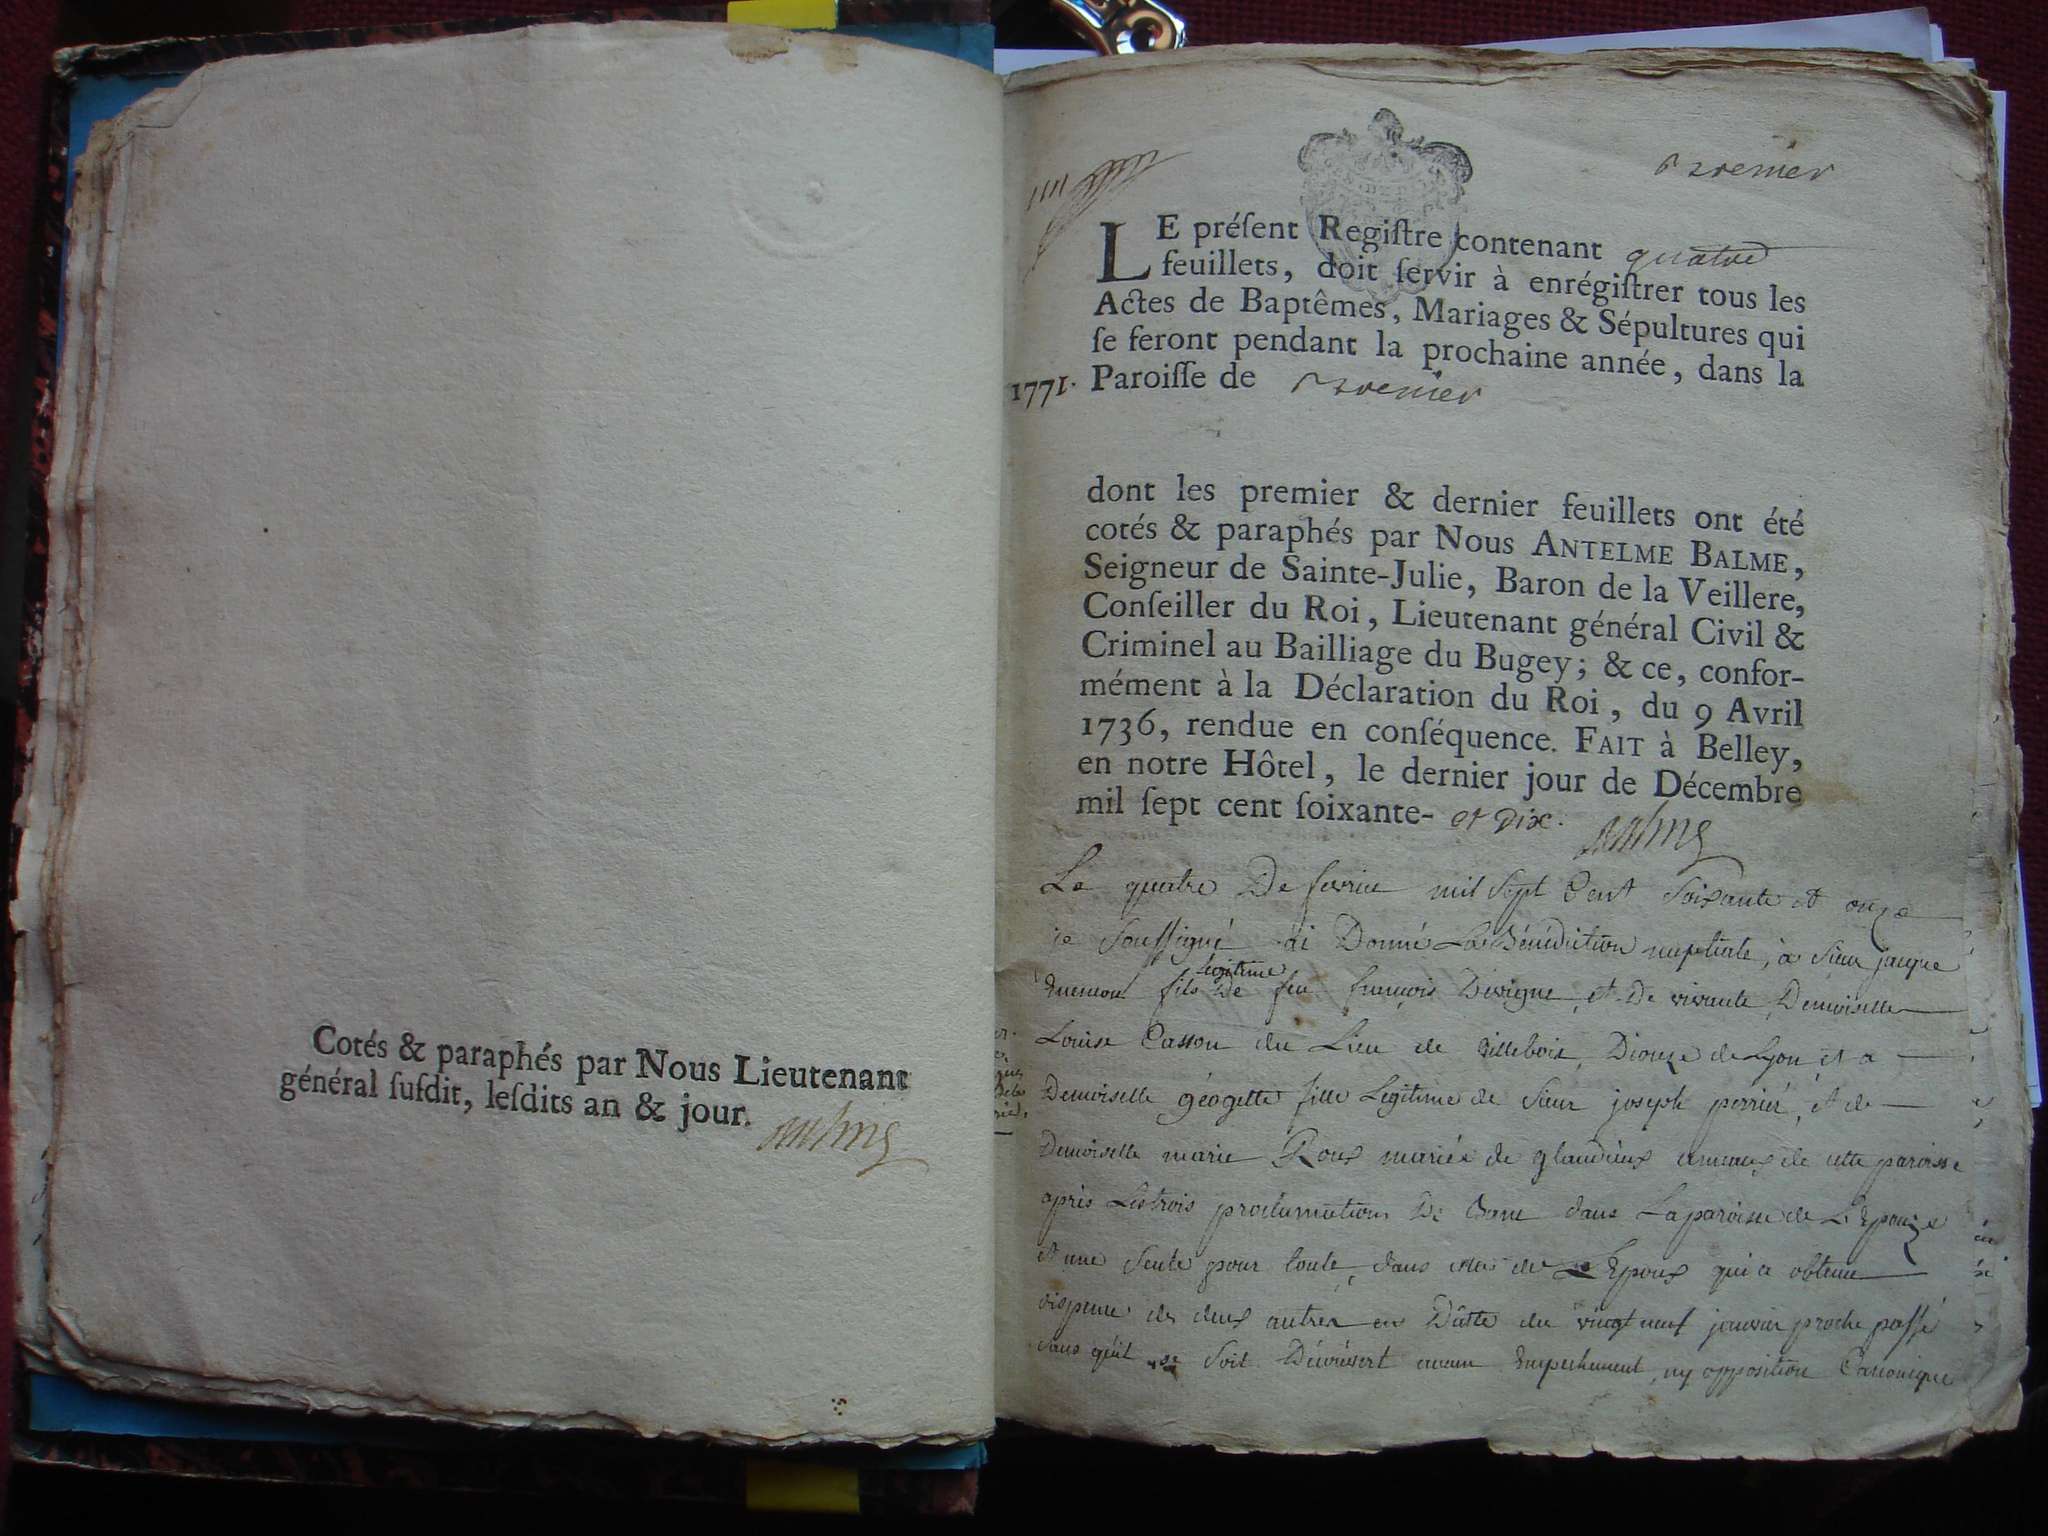 Cotés & paraphés par Nous Lieutenant
général ſuſdit, leſdits an & jour.
LE préſent Regiſtre contenant quatre
feuillets, doit ſervir à enrégiſtrer tous les
Actes de Baptêmes, Mariages & Sépultures qui
ſe feront pendant la prochaine année, dans la
1771. Paroiſſe de
dont les premier & dernier feuillets ont été
cotés & paraphés par Nous ANTELME BALME,
Seigneur de Sainte-Julie, Baron de la Veillere,
Conſeiller du Roi, Lieutenant général Civil &
Criminel au Bailliage du Bugey; & ce, confor-
mément à la Déclaration du Roi, du 9 Avril
1736, rendue en conſéquence. FAIT à Belley,
en notre Hôtel, le dernier jour de Décembre
mil ſept cent ſoixante- et Dix.
Le quatre De fevrier mil Sept Cent Soixante et onze
je Soussigné ai Donné La Bénédiction nuptiale, a Sieur jacque
legitime
fils De feu françois et De vivante Demoiselle
Louise Casson du Lieu de villebois, Dioceze de Lyon, et a
Demoiselle géogette fille Legitime de Sieur joseph perrier, et de
Demoiselle marie Roux mariée de de cette paroisse
après Les trois proclamations De Banc dans La paroisse de L'Epouze
et une Seule pour toute, dans celle de L'Epoux qui a obtenu
dispense des deux autres en Datte du vingt neuf janvier proche passé
sans qu'il se Soit Decouvert aucun Empechement, ny opposition Canonique